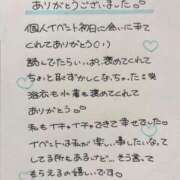 ありがとうございました。
個人イベント初日に会いに来て
くれてありがとう(！)
話してたらいい お褒めてくれて
ちょっと恥ずかしくなっちゃった笑
浴衣も水着も褒めてくれて
ありがとう
私もイチャイチャできて幸せでした。
イベントは私が楽しい事したいなって
してる所もあるけど… そう言って
もらえるの嬉しいです